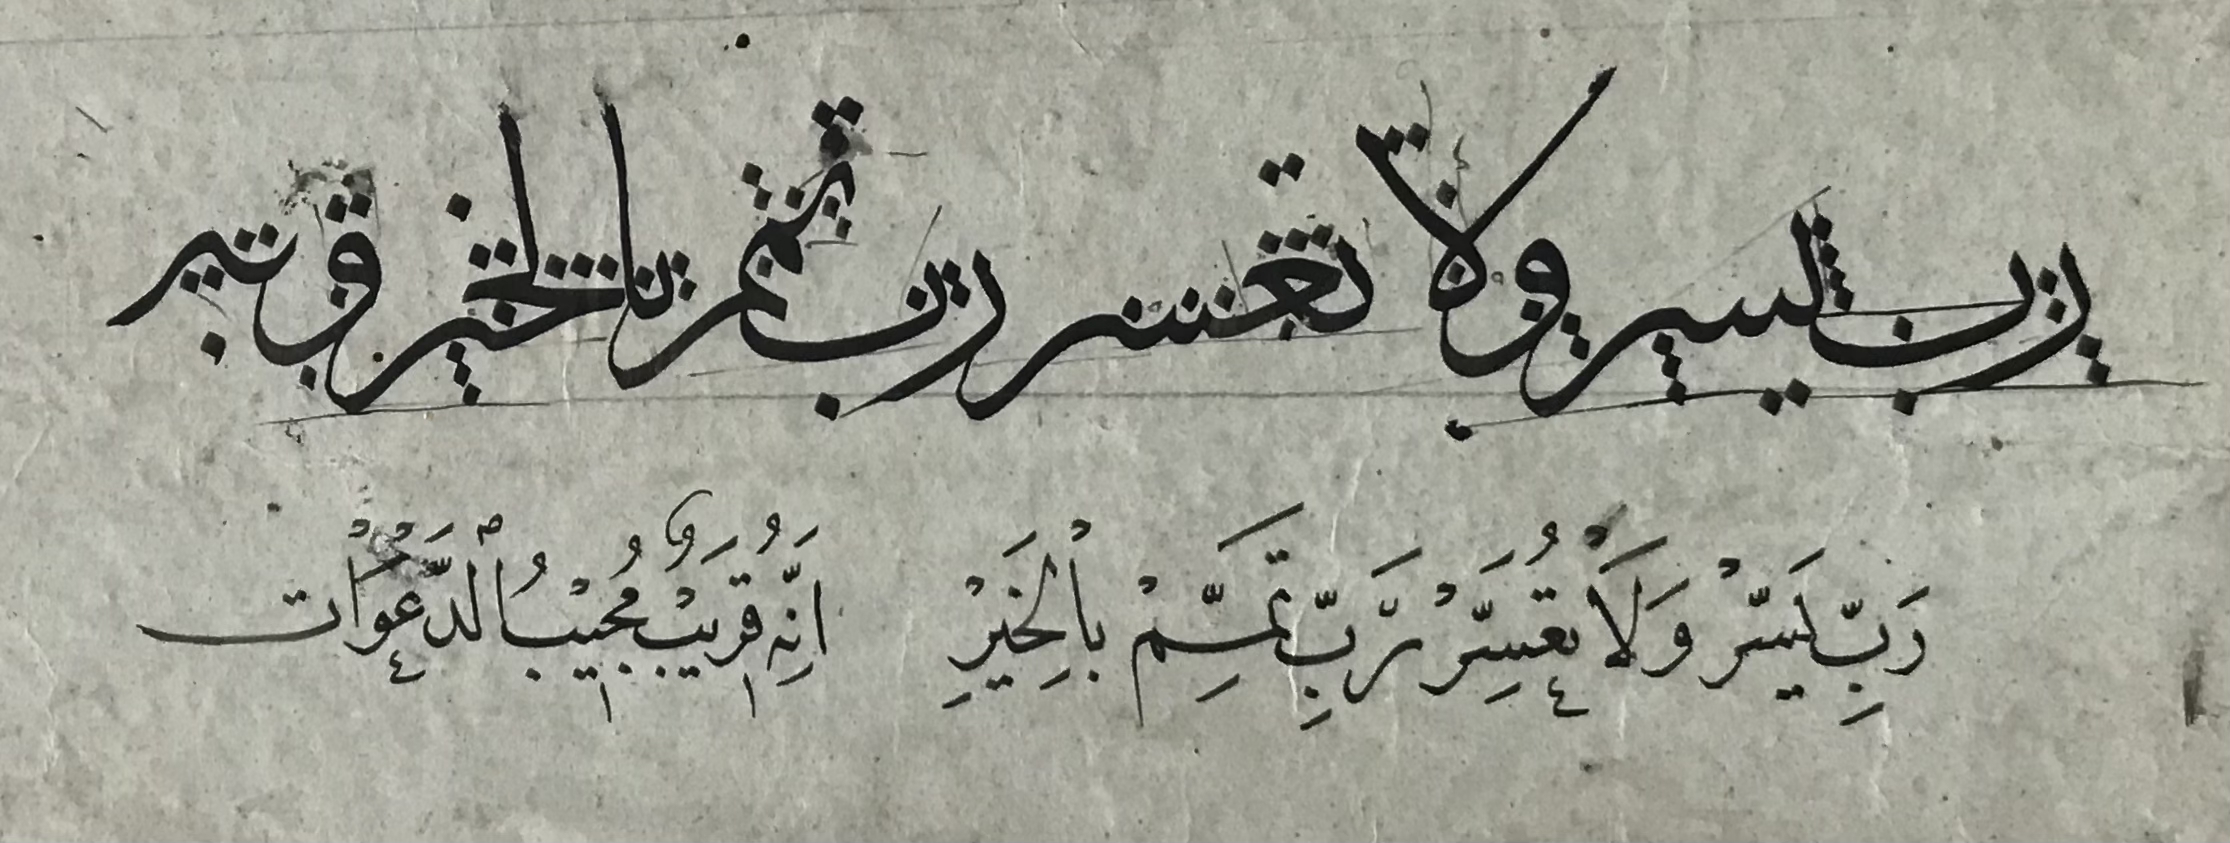 رب يسر ولا تعسر رب تمم بالخير وبه
رَبِّ يَسِّرْ وَلَا تُعَسِّرْ رَبِّ تَمِّمْ بِالْخَيْرِ اِنَّهُ قَرِيْبٌ مُجِيْبُ الدَّعَوَاتْ